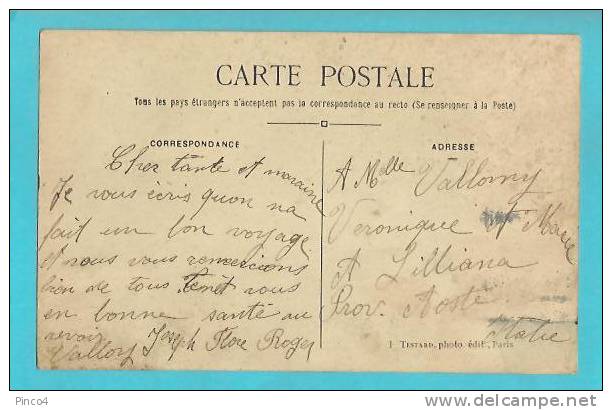 CARTE POSTALE
Tous les pays étrangers n'acceptent pas la correspondance au recto (Se renseigner à la Poste)
CORRESPONDANCE
Cher tante et maraine
Je vous écris quon na
fait un bon voyage
et nous vous remercions
bien de tous Tenet vous
en bonne santé au
revoir Joseph Flore Roger
Vallory
ADRESSE
A Melle Vallomy
Veronique Marie
A Lilliana
Prov. Aoste
Italie
I. Testard, photo. édit., Paris
Pinco4
delcampe.net